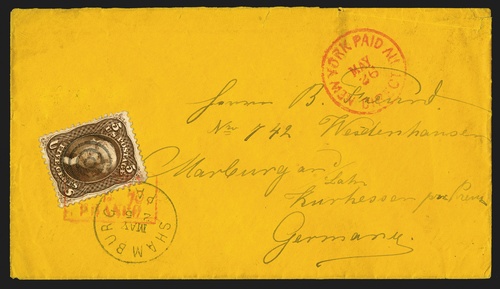 NEW YORK PAID ALL
MAY
26
DIRECT
Herrn B.
No 742 Weidenhausen
Marburg and Lahn
Kurhessen
Germany.
5
U S
POSTAGE
SHAMBURG
MAY
25
PA